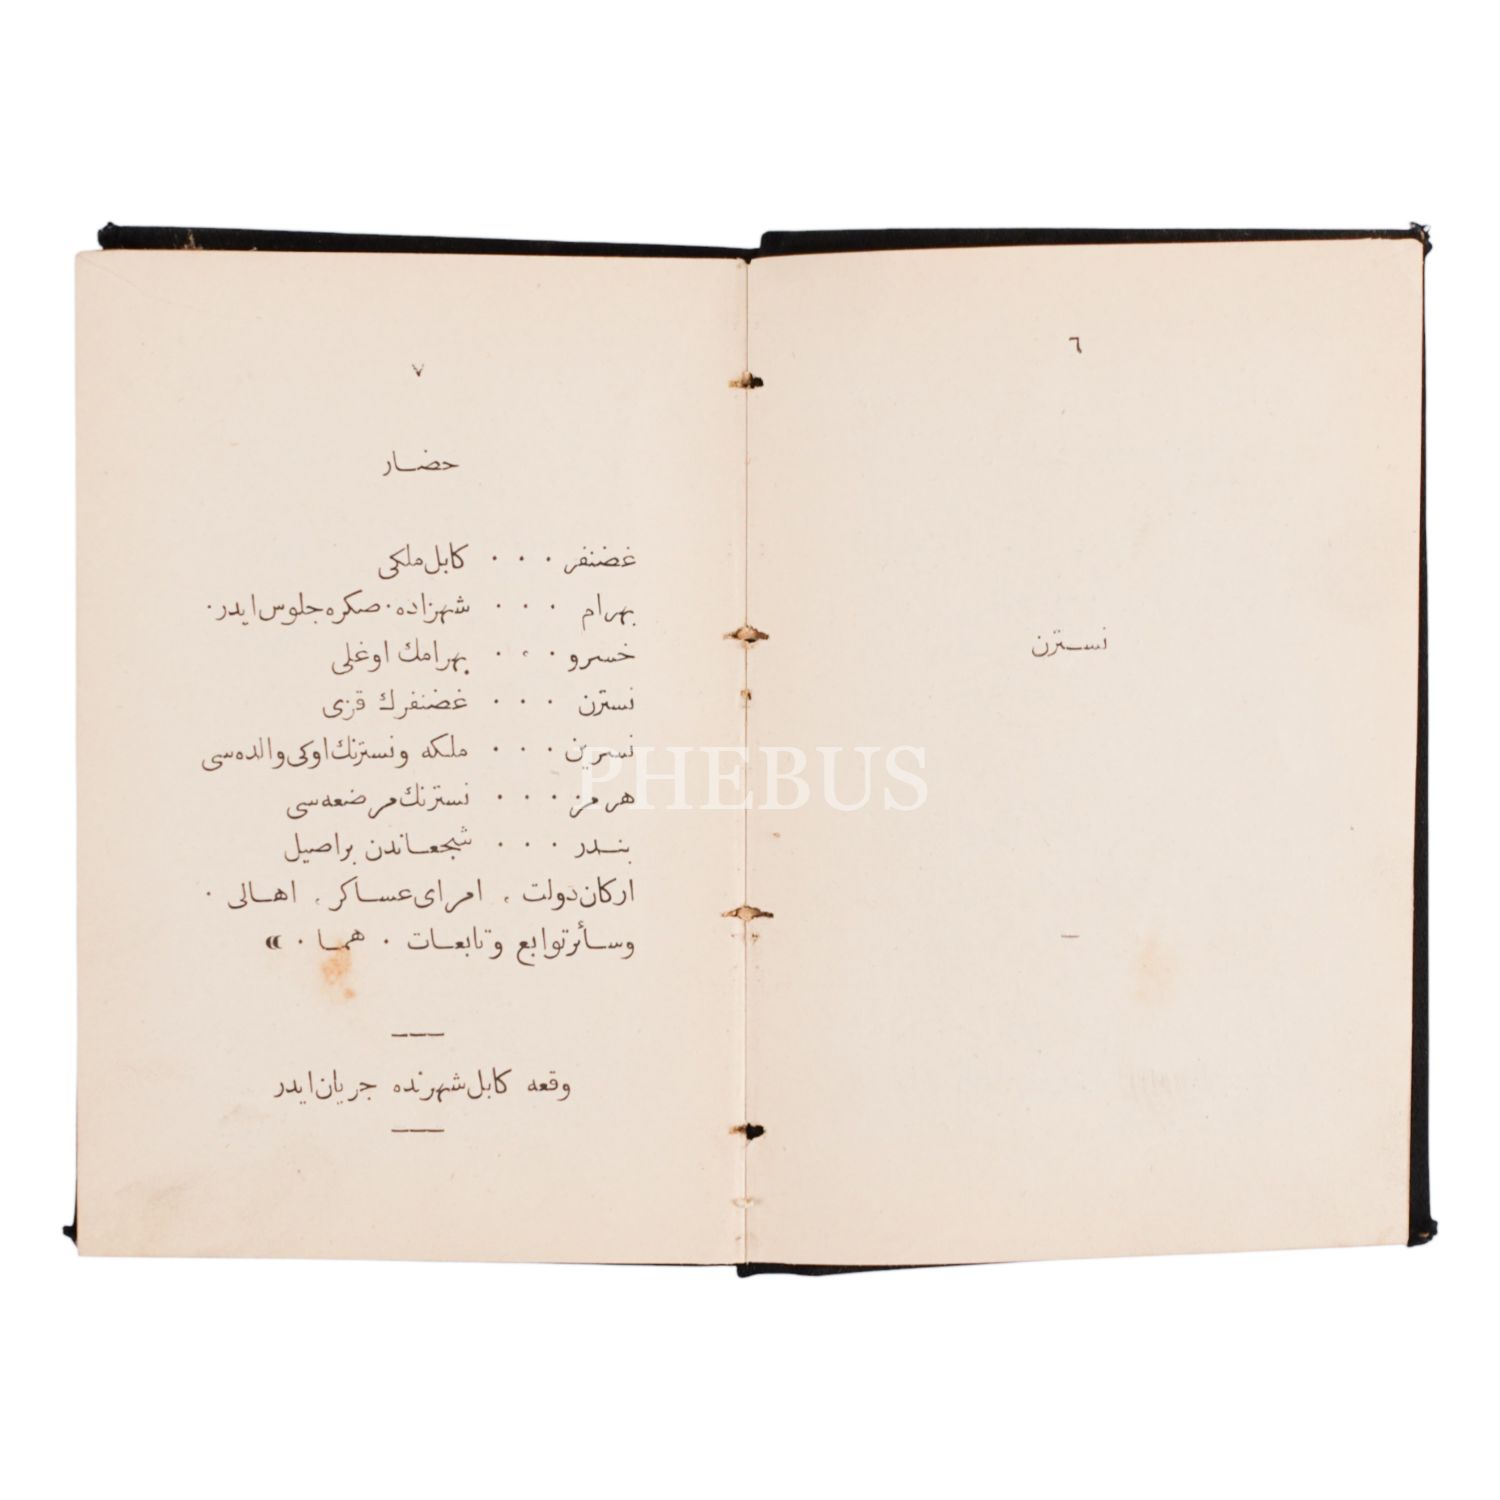 ٦
نسترن
٧
حضار
غضنفر . . . كابل ملكى
بهرام . . . شهزاده. صكره جلوس ايدر.
خسرو . . . بهرامك اوغلى
نسترن . . . غضنفرك قزى
نسرين . . . ملكه ونسترنك اوكى والده‌سى
هرمز . . . نسترنك مرضعه‌سى
بندر . . . شجعاندن براصيل
اركان دولت ، امراى عساكر ، اهالى .
وسائر توابع وتابعات . هما . »
وقعه كابل شهرنده جريان ايدر
PHEBUS